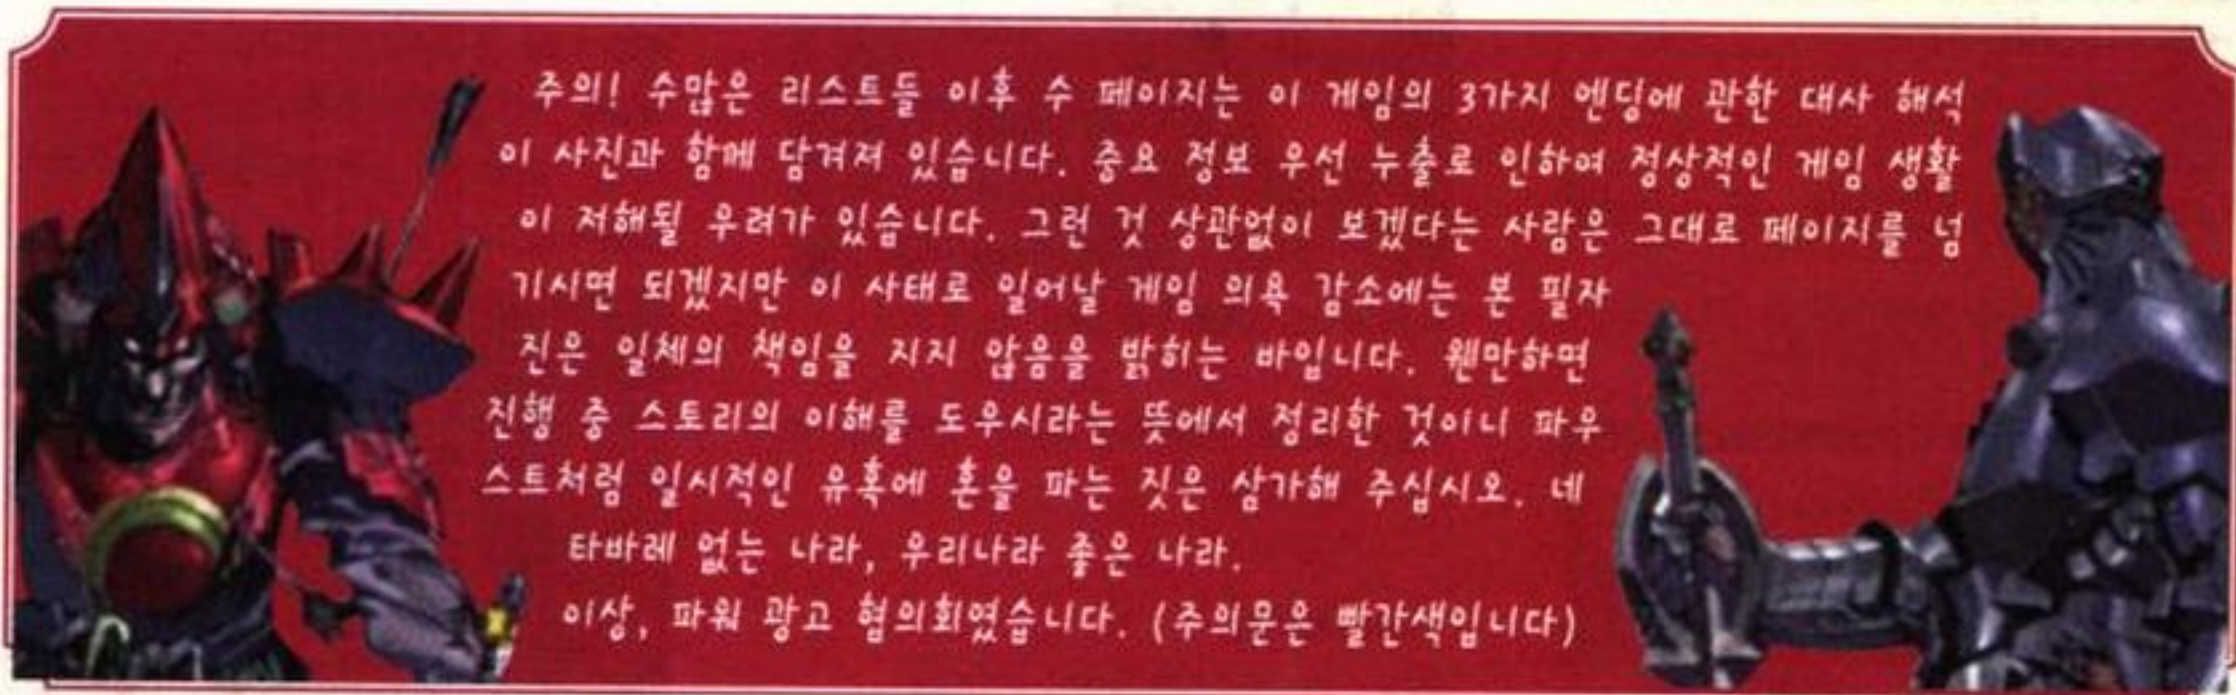 주의! 수많은 리스트들 이후 수 페이지는 이 게임의 3가지 엔딩에 관한 대사 해석
이 사진과 함께 담겨져 있습니다. 중요 정보 우선 누출로 인하여 정상적인 게임 생활
이 저해될 우려가 있습니다. 그런 것 상관없이 보겠다는 사람은 그대로 페이지를 넘
기시면 되겠지만 이 사태로 일어날 게임 의욕 감소에는 본 필자
진은 일체의 책임을 지지 않음을 밝히는 바입니다. 웬만하면
진행 중 스토리의 이해를 도우시라는 뜻에서 정리한 것이니 파우
스트처럼 일시적인 유혹에 혼을 파는 짓은 삼가해 주십시오. 네
타바레 없는 나라, 우리나라 좋은 나라.
이상, 파워 광고 협의회였습니다. (주의문은 빨간색입니다)